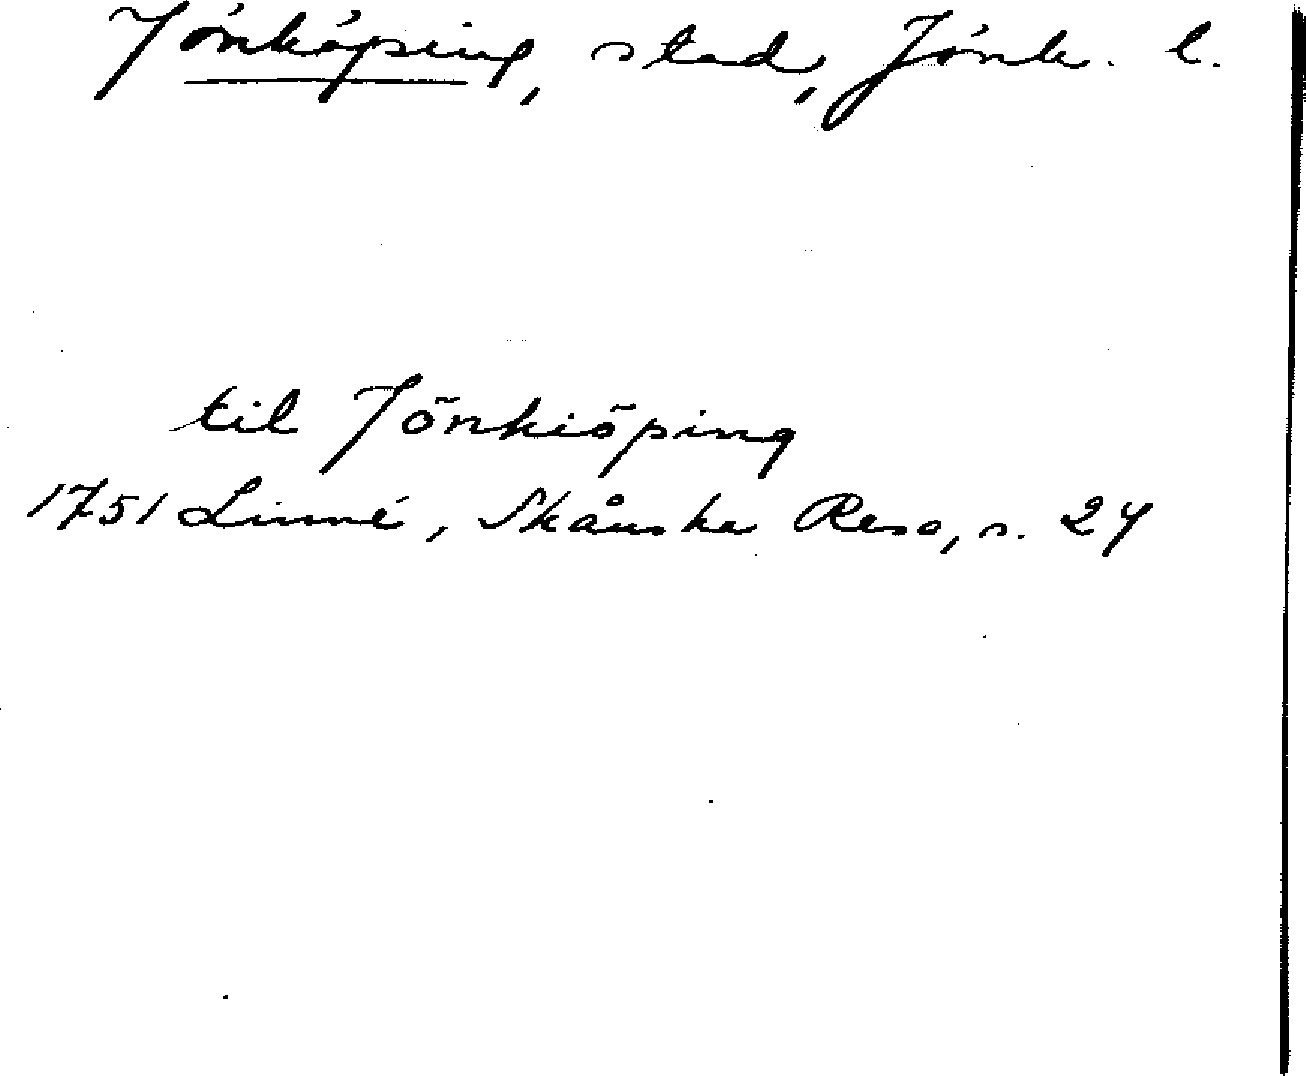 Jönköping, stad, Jönk. l.
til Jönkiöping
1751 Linné, Skånska Resa, s. 24